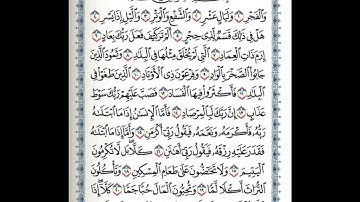 وَٱلْفَجْرِ ١ وَلَيَالٍ عَشْرٍ ٢ وَٱلشَّفْعِ وَٱلْوَتْرِ ٣ وَٱلَّيْلِ إِذَا يَسْرِ ٤
هَلْ فِى ذَٰلِكَ قَسَمٌ لِّذِى حِجْرٍ ٥ أَلَمْ تَرَ كَيْفَ فَعَلَ رَبُّكَ بِعَادٍ ٦
إِرَمَ ذَاتِ ٱلْعِمَادِ ٧ ٱلَّتِى لَمْ يُخْلَقْ مِثْلُهَا فِى ٱلْبِلَٰدِ ٨ وَثَمُودَ ٱلَّذِينَ
جَابُوا۟ ٱلصَّخْرَ بِٱلْوَادِ ٩ وَفِرْعَوْنَ ذِى ٱلْأَوْتَادِ ١٠ ٱلَّذِينَ طَغَوْا۟ فِى
ٱلْبِلَٰدِ ١١ فَأَكْثَرُوا۟ فِيهَا ٱلْفَسَادَ ١٢ فَصَبَّ عَلَيْهِمْ رَبُّكَ سَوْطَ
عَذَابٍ ١٣ إِنَّ رَبَّكَ لَبِٱلْمِرْصَادِ ١٤ فَأَمَّا ٱلْإِنسَٰنُ إِذَا مَا ٱبْتَلَىٰهُ
رَبُّهُۥ فَأَكْرَمَهُۥ وَنَعَّمَهُۥ فَيَقُولُ رَبِّىٓ أَكْرَمَنِ ١٥ وَأَمَّآ إِذَا مَا ٱبْتَلَىٰهُ
فَقَدَرَ عَلَيْهِ رِزْقَهُۥ فَيَقُولُ رَبِّىٓ أَهَٰنَنِ ١٦ كَلَّا بَل لَّا تُكْرِمُونَ
ٱلْيَتِيمَ ١٧ وَلَا تَحَٰٓضُّونَ عَلَىٰ طَعَامِ ٱلْمِسْكِينِ ١٨ وَتَأْكُلُونَ
ٱلتُّرَاثَ أَكْلًا لَّمًّا ١٩ وَتُحِبُّونَ ٱلْمَالَ حُبًّا جَمًّا ٢٠ كَلَّآ إِذَا